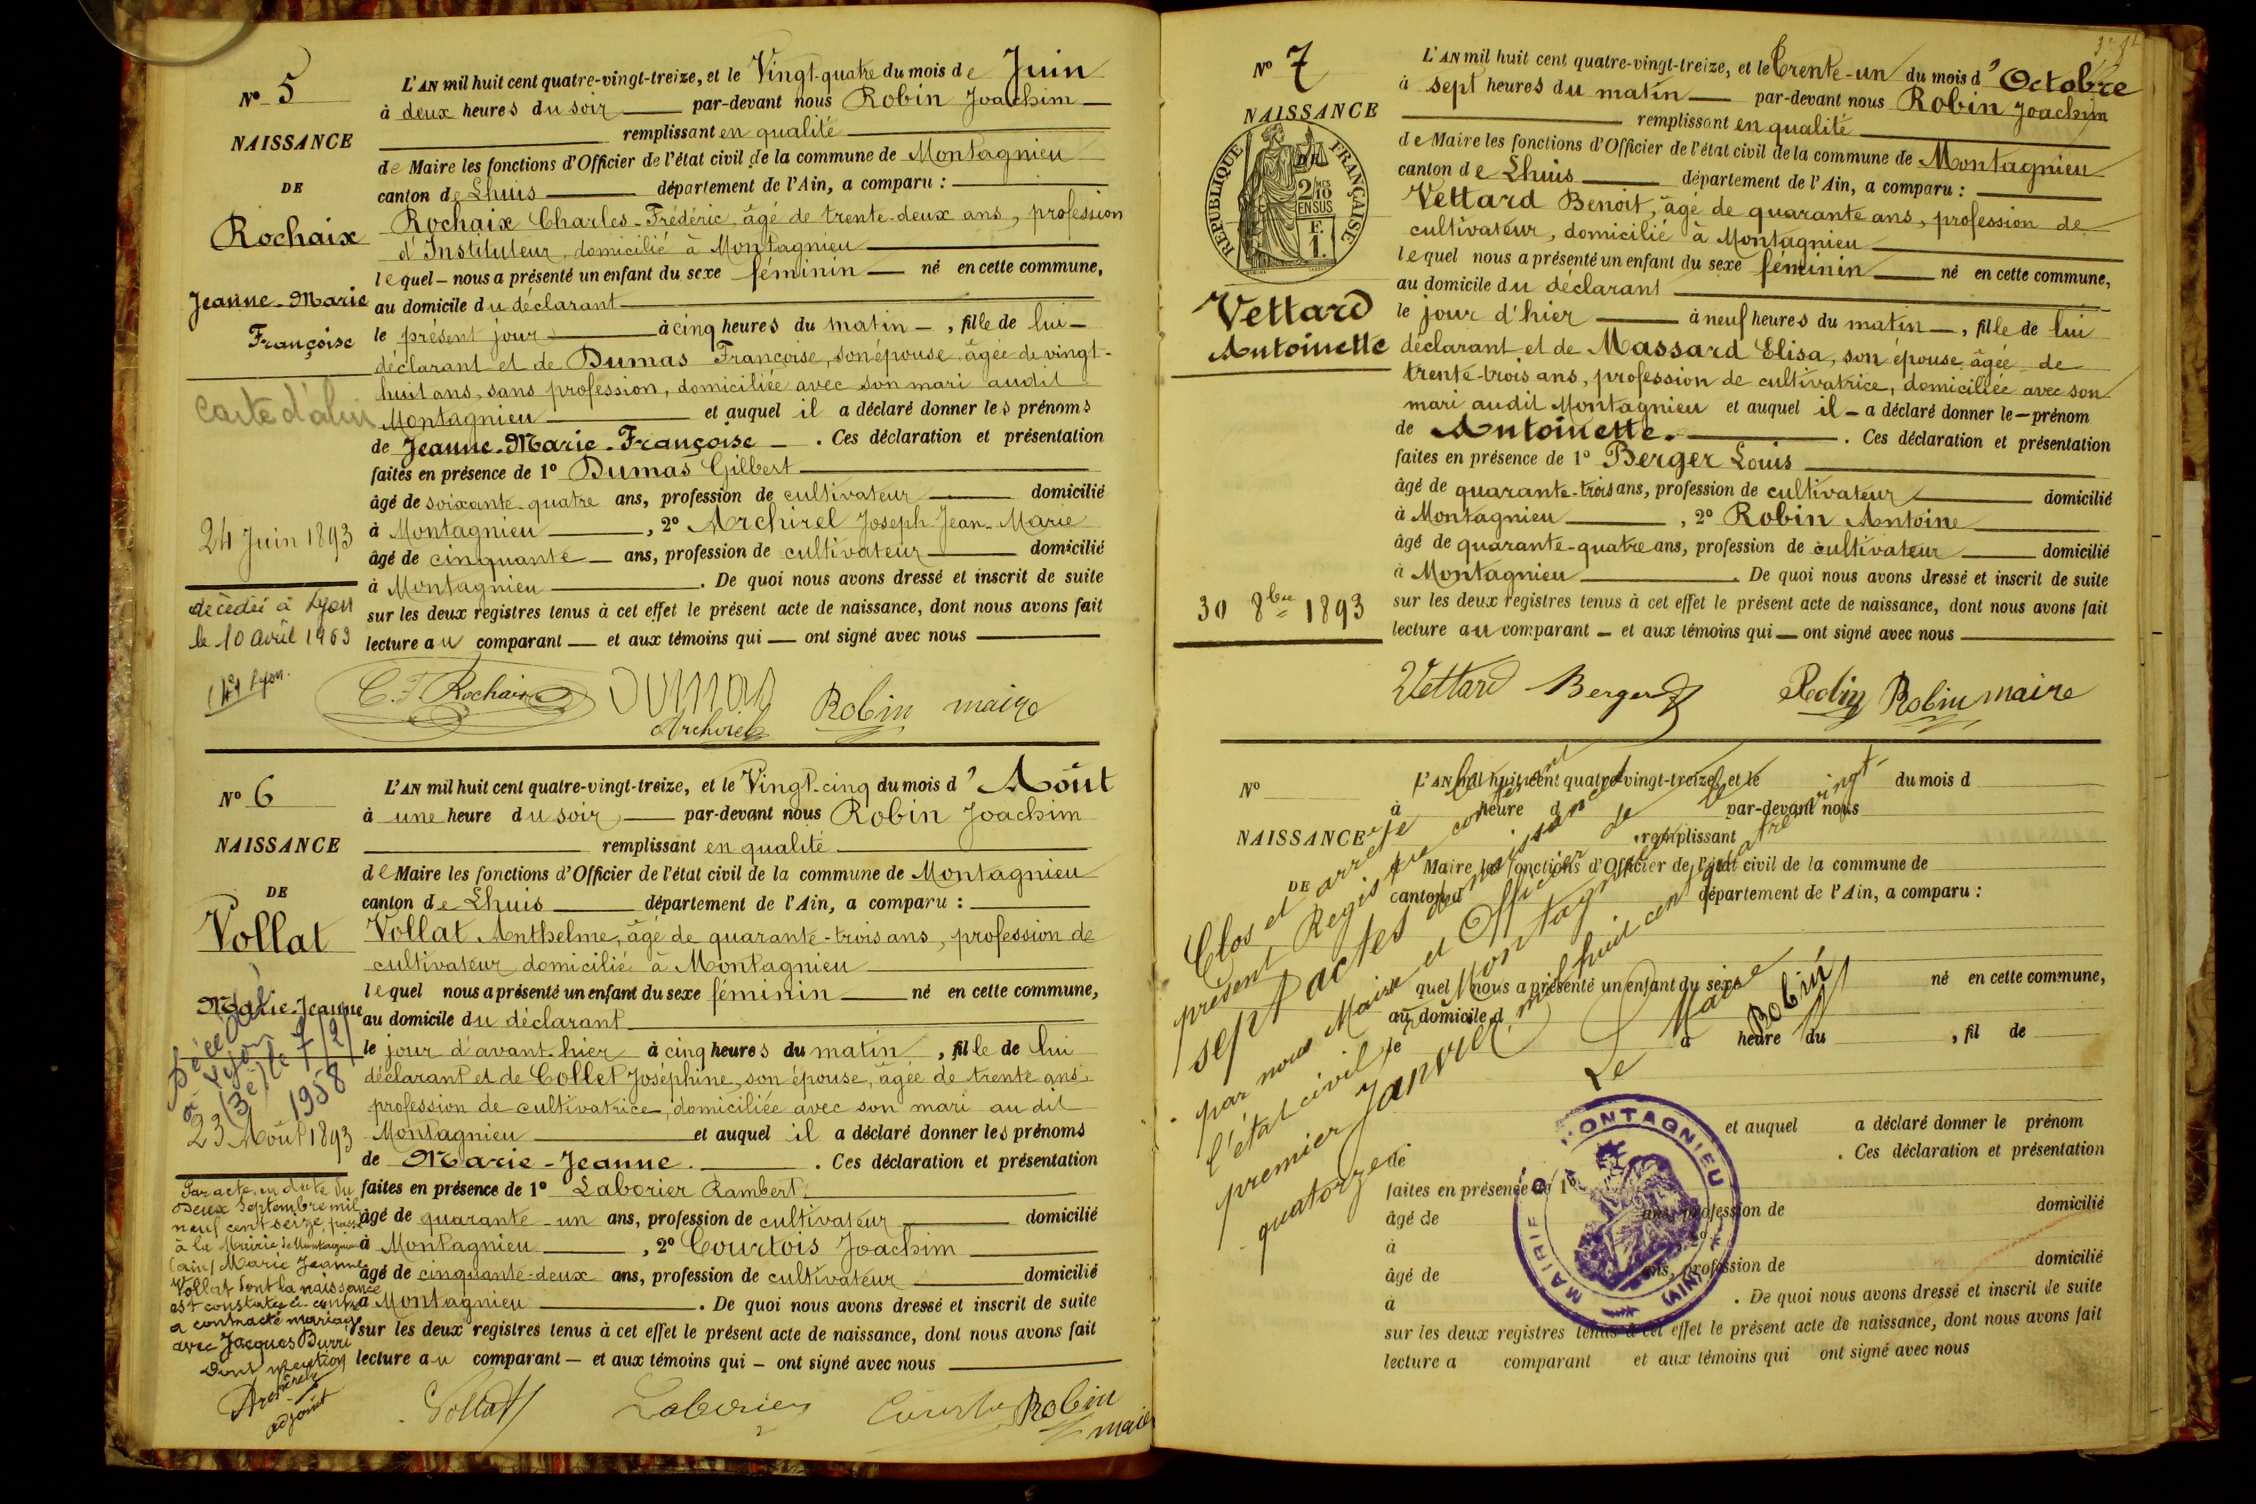 Nº 5
NAISSANCE
DE
Rochaix
Jeanne-Marie
Françoise
Carte d'
24 Juin 1893
décédée à Lyon
le 10 avril 1963
L'AN mil huit cent quatre-vingt-treize, et le Vingt-quatre du mois de Juin
à deux heures du soir par-devant nous Robin Joachim
remplissant en qualité
de Maire les fonctions d'Officier de l'état civil de la commune de Montagnieu
canton de Lhuis département de l'Ain, a comparu :
Rochaix Charles-Frédéric, âgé de trente-deux ans, profession
d'Instituteur, domicilié à Montagnieu
lequel nous a présenté un enfant du sexe féminin né en cette commune,
au domicile du déclarant
le présent jour à cinq heures du matin, fille de lui
déclarant et de Dumas Françoise, son épouse, âgée de vingt-
huit ans, sans profession, domiciliée avec son mari audit
Montagnieu et auquel il a déclaré donner les prénoms
de Jeanne-Marie-Françoise. Ces déclaration et présentation
faites en présence de 1º Dumas Gilbert
âgé de soixante-quatre ans, profession de cultivateur domicilié
à Montagnieu, 2º Archirel Joseph Jean-Marie
âgé de cinquante ans, profession de cultivateur domicilié
à Montagnieu. De quoi nous avons dressé et inscrit de suite
sur les deux registres tenus à cet effet le présent acte de naissance, dont nous avons fait
lecture au comparant et aux témoins qui ont signé avec nous
C. F. Rochaix Dumas Archirel Robin maire
Nº 6
NAISSANCE
DE
Vollat
Marie-Jeanne
Décédée
à Lyon
(3e) le 7/2/
1958
23 Août 1893
Par acte en date du
deux Septembre mil
neuf cent seize, passé
à la Mairie de Montagnieu
(Ain) Marie Jeanne
Vollat dont la naissance
est constatée ci-contre
a contracté mariage
avec Jacques Burri
Dont mention
adjoint
L'AN mil huit cent quatre-vingt-treize, et le Vingt-cinq du mois d'Août
à une heure du soir par-devant nous Robin Joachim
remplissant en qualité
de Maire les fonctions d'Officier de l'état civil de la commune de Montagnieu
canton de Lhuis département de l'Ain, a comparu :
Vollat Anthelme, âgé de quarante-trois ans, profession de
cultivateur domicilié à Montagnieu
lequel nous a présenté un enfant du sexe féminin né en cette commune,
au domicile du déclarant
le jour d'avant-hier à cinq heures du matin, fille de lui
déclarant et de Collet Joséphine, son épouse, âgée de trente ans
profession de cultivatrice, domiciliée avec son mari au dit
Montagnieu et auquel il a déclaré donner les prénoms
de Marie-Jeanne. Ces déclaration et présentation
faites en présence de 1º Laborier Rambert
âgé de quarante-un ans, profession de cultivateur domicilié
à Montagnieu, 2º Courtois Joachim
âgé de cinquante-deux ans, profession de cultivateur domicilié
à Montagnieu. De quoi nous avons dressé et inscrit de suite
sur les deux registres tenus à cet effet le présent acte de naissance, dont nous avons fait
lecture au comparant et aux témoins qui ont signé avec nous
Vollat Laborier Courtois Robin maire
Nº 7
NAISSANCE
RÉPUBLIQUE FRANÇAISE
2/10 EN SUS
Vettard
Antoinette
30 8bre 1893
L'AN mil huit cent quatre-vingt-treize, et le Trente-un du mois d'Octobre
à sept heures du matin par-devant nous Robin Joachim
remplissant en qualité
de Maire les fonctions d'Officier de l'état civil de la commune de Montagnieu
canton de Lhuis département de l'Ain, a comparu :
Vettard Benoit, âgé de quarante ans, profession de
cultivateur, domicilié à Montagnieu
lequel nous a présenté un enfant du sexe féminin né en cette commune,
au domicile du déclarant
le jour d'hier à neuf heures du matin, fille de lui
déclarant et de Massard Elisa, son épouse âgée de
trente-trois ans, profession de cultivatrice, domiciliée avec son
mari audit Montagnieu et auquel il a déclaré donner le prénom
de Antoinette. Ces déclaration et présentation
faites en présence de 1º Berger Louis
âgé de quarante-trois ans, profession de cultivateur domicilié
à Montagnieu, 2º Robin Antoine
âgé de quarante-quatre ans, profession de cultivateur domicilié
à Montagnieu. De quoi nous avons dressé et inscrit de suite
sur les deux registres tenus à cet effet le présent acte de naissance, dont nous avons fait
lecture au comparant et aux témoins qui ont signé avec nous
Vettard Berger Robin Robin maire
Nº
NAISSANCE
DE
L'AN mil huit cent quatre-vingt-treize, et le du mois d
à heure d par-devant nous
remplissant
Maire les fonctions d'Officier de l'état civil de la commune de
canton d département de l'Ain, a comparu :
quel nous a présenté un enfant du sexe né en cette commune,
au domicile d
le à heure du , fil de
et auquel a déclaré donner le prénom
de . Ces déclaration et présentation
faites en présence de 1º
âgé de ans, profession de domicilié
à
âgé de ans, profession de domicilié
à . De quoi nous avons dressé et inscrit de suite
sur les deux registres tenus à cet effet le présent acte de naissance, dont nous avons fait
lecture a comparant et aux témoins qui ont signé avec nous
Clos et arrêté le
présent Registre contenant
sept actes de naissance
par nous Maire et Officier de
l'état civil de Montagnieu le
premier Janvier mil huit cent quatre vingt
quatorze
Le Maire
Robin
MAIRIE DE MONTAGNIEU (AIN)